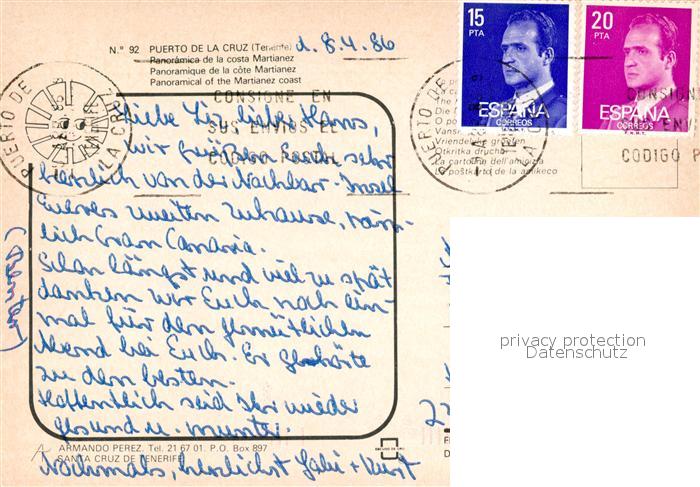 N.º 92 PUERTO DE LA CRUZ (Tenerife) d. 8.4.86
Panorámica de la costa Martianez
Panoramique de la côte Martianez
Panoramical of the Martianez coast
15
PTA
ESPAÑA
CORREOS
20
PTA
ESPAÑA
CORREOS
PUERTO DE LA CRUZ
CONSIGNE EN
SUS ENVIOS EL
CODIGO POSTAL
PUERTO DE
CODIGO P
Vriendelijke groeten
Otkritka druchb
La cartoline dell'amicizia
La poŝtkarto de la amikeco
Liebe Liz, lieber Hanns,
wir grüßen Euch sehr
herzlich von der Nachbar-Insel
Eueres zweiten Zuhause, näm-
lich Gran Canaria.
Schon längst und viel zu spät
danken wir Euch noch ein-
mal für den gemütlichen
Abend bei Euch. Er gehörte
zu den besten.
Hoffentlich seid Ihr wieder
gesund u. munter.
Nochmals, herzlichst Gabi + Kurt
ARMANDO PEREZ. Tel. 21 67 01. P.O. Box 897
SANTA CRUZ DE TENERIFE
privacy protection
Datenschutz